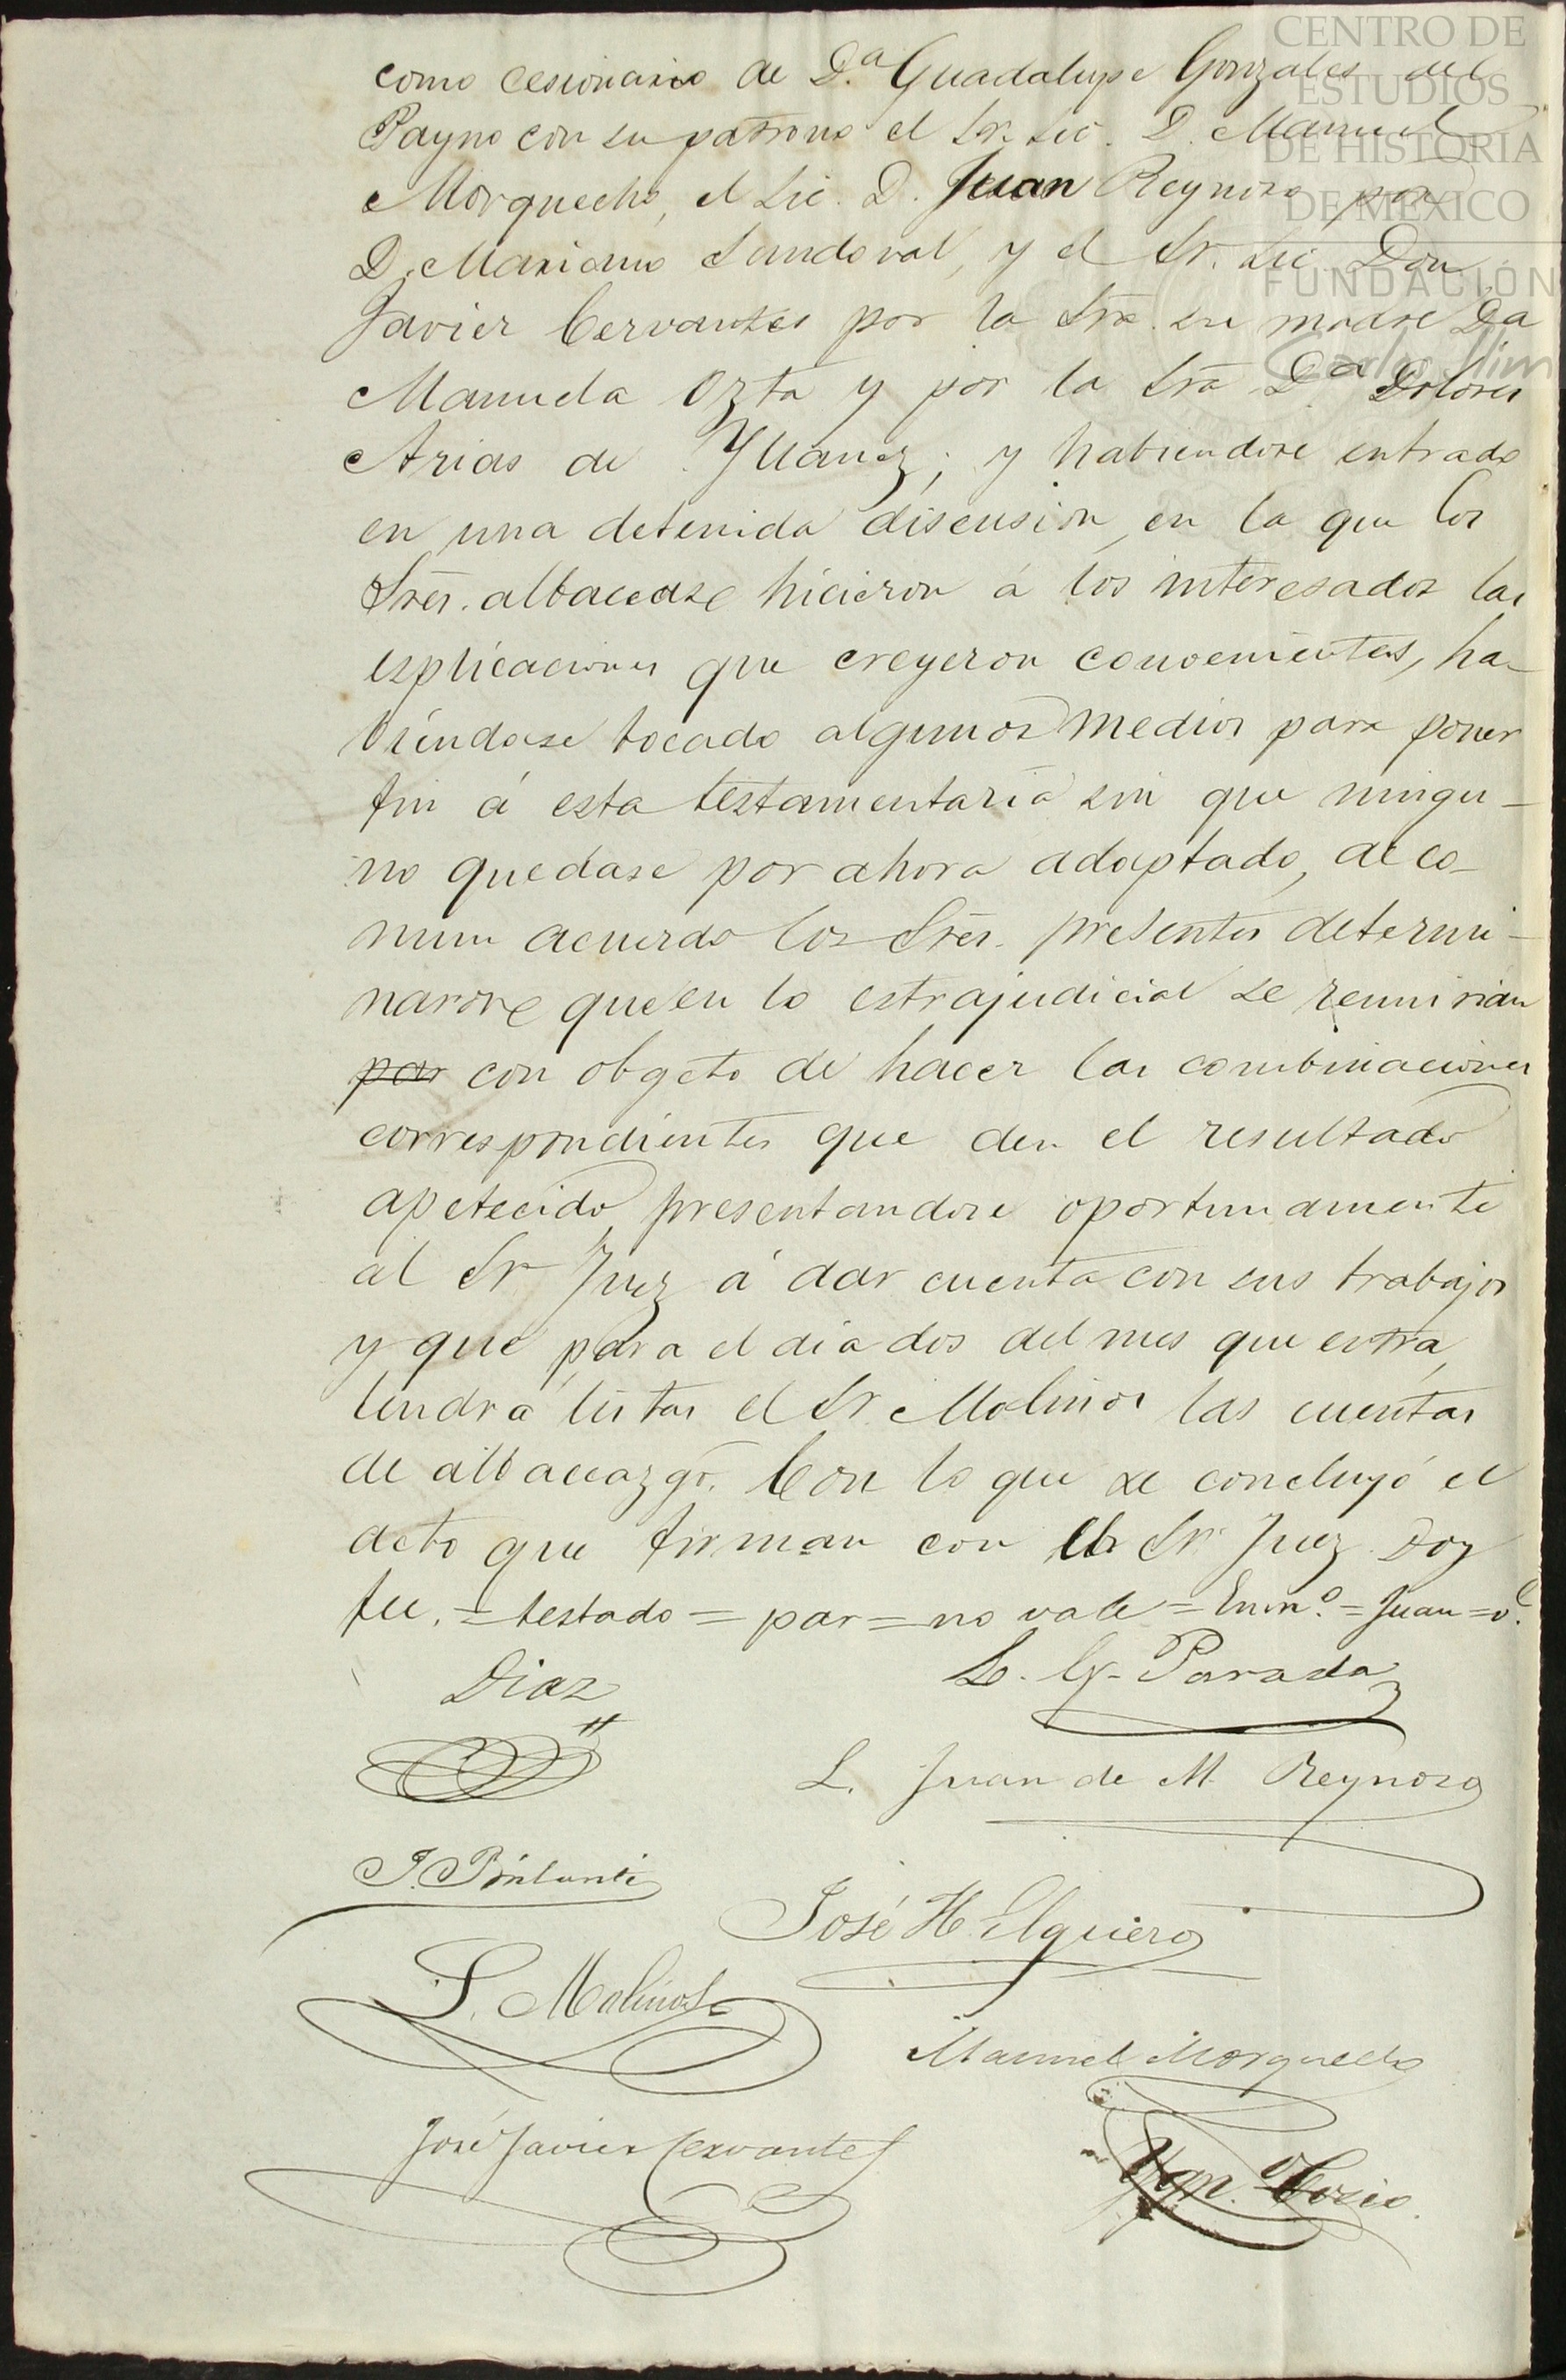 CENTRO DE
ESTUDIOS
DE HISTORIA
DE MÉXICO
FUNDACIÓN
Carlos Slim
como cesionario de D.ª Guadalupe Gonzales del
Payno con su patrono el Sr. Lic. D. Manuel
Morquecho, el Lic. D. Juan Reynoso por
D. Mariano Sandoval, y el Sr. Lic Don
Javier Cervantes por la Sra. su madre Da
Manuela Ozta y por la Sra D.ª Dolores
Arias de Yllanez; y habiendose entrado
en una detenida discusion, en la que los
Sres. albaceas hicieron á los interesados las
esplicaciones que creyeron convenientes, ha-
biéndose tocado algunos medios para poner
fin á esta testamentaria sin que ningu-
no quedase por ahora adaptado, de co-
mun acuerdo los Sres. presentes determi-
naron que en lo estrajudicial se reunirian
par con obgeto de hacer las combinaciones
correspondientes que den el resultado
apetecido, presentandose oportunamente
al Sr Juez á dar cuenta con sus trabajos
y que para el dia dos del mes que entra,
tendrá listas el Sr. Molinos las cuentas
de albaceazgo. Con lo que se concluyó el
acto que firman con el Sr Juez. Doy
fee. = testado = par = no vale = Enmº. = Juan = v.e
Diaz
L. G. Parada
L. Juan de M. Reynoso
José H. Elguero
S. Molinos
Manuel Morquecho
José Javier Cervantes
Cosio